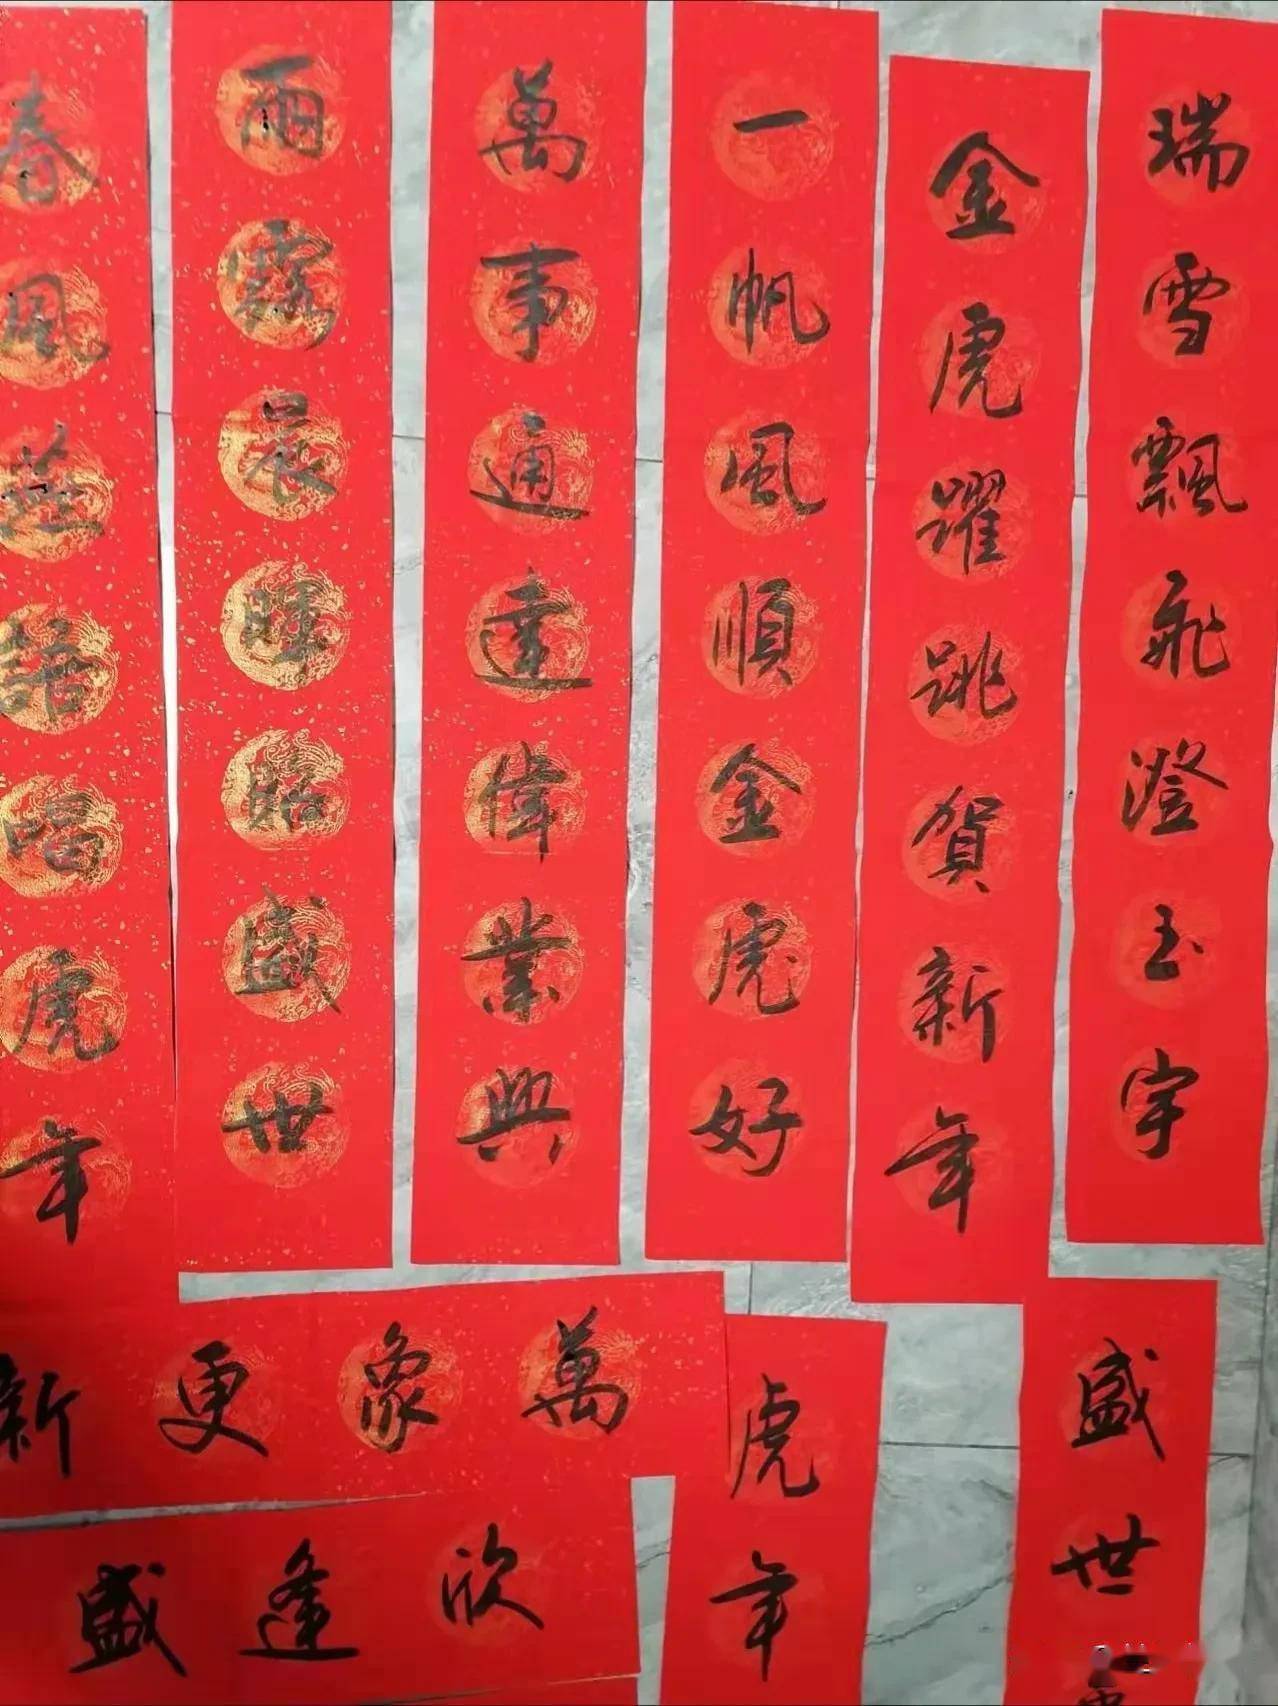 瑞雪飄飛澄玉宇
金虎躍跳賀新年
一帆風順金虎好
萬事通達偉業興
雨露晨暉照盛世
春風燕語唱虎年
萬象更新
欣逢盛
虎年
盛世